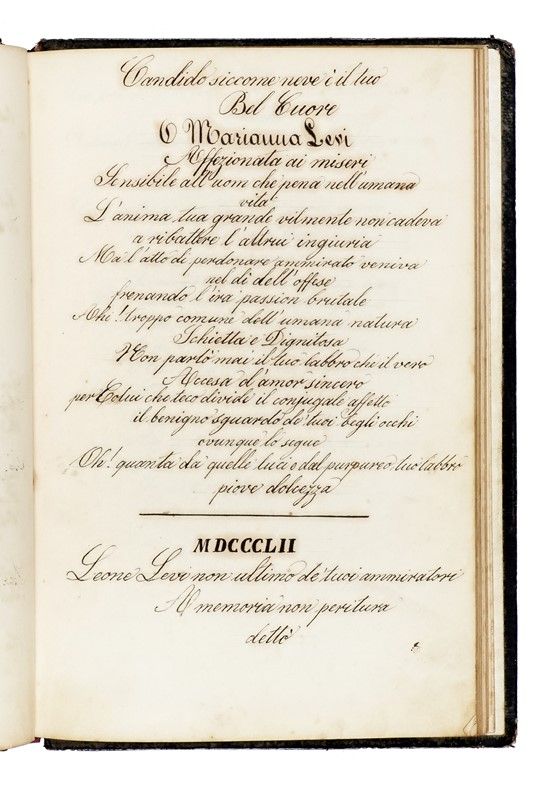 Candido siccome neve è il tuo
Bel Cuore
O Marianna Levi
Affezionata ai miseri
Sensibile all'uom che pena nell'umana
vita
L'anima tua grande vilmente non cadeva
a ribattere l'altrui ingiuria
Ma l'atto di perdonare ammirato veniva
nel dì dell'offese
frenando l'ira passion brutale
Ahi! troppo comune dell'umana natura
Schietta e Dignitosa
Non partò mai il tuo labbro che il vero
Accesa d'amor sincero
per Colui che teco divide il conjugale affetto
il benigno sguardo de' tuoi begli occhi
ovunque lo segue
Oh! quanta da quelle luci e dal purpureo tuo labbro
piove dolcezza
MDCCCLII
Leone Levi non ultimo de' tuoi ammiratori
A memoria non peritura
dettò